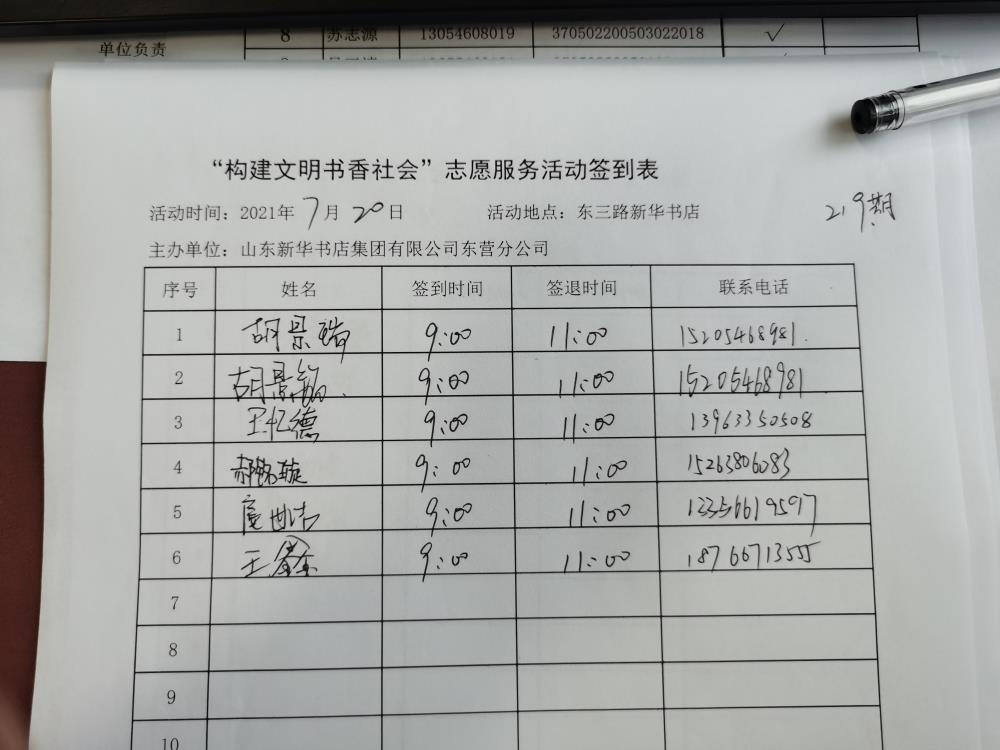 单位负责 8 苏志源 13054608019 370502200503022018 √
“构建文明书香社会”志愿服务活动签到表
活动时间：2021年7月20日 活动地点：东三路新华书店 219期
主办单位：山东新华书店集团有限公司东营分公司
序号 姓名 签到时间 签退时间 联系电话
1 胡景瑞 9:00 11:00 15205468981
2 胡景铭 9:00 11:00 15205468981
3 王忆德 9:00 11:00 13963350508
4 郝铭璇 9:00 11:00 15263806083
5 9:00 11:00 13356619597
6 王鑫 9:00 11:00 18766713555
7
8
9
10